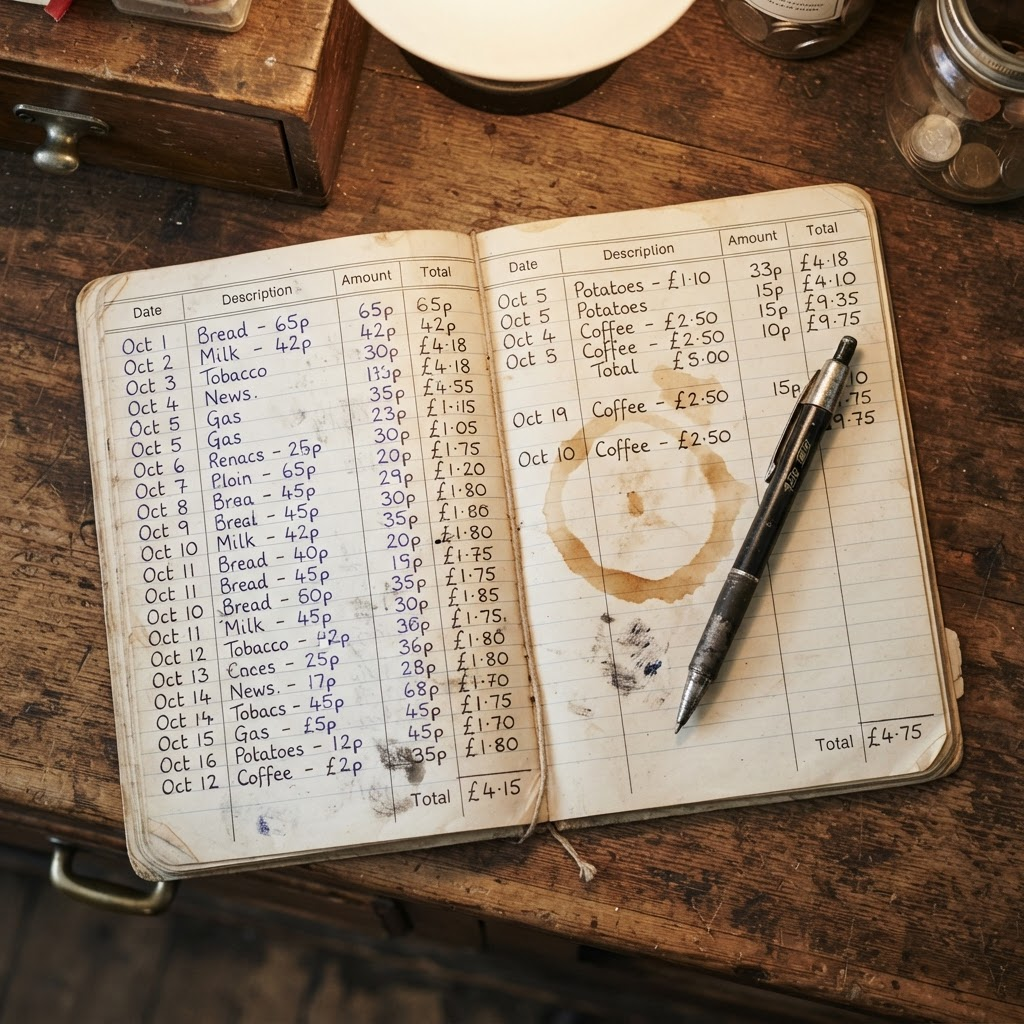 Date Description Amount Total
Oct 1 Bread - 65p 65p 65p
Oct 2 Milk - 42p 42p 42p
Oct 3 Tobacco 30p £4·18
Oct 4 News. £4·18
Oct 5 Gas 35p £4·55
Oct 5 Gas 23p
Oct 6 Renacs - 25p 30p £1·05
Oct 7 Ploin - 65p 20p £1·75
Oct 8 Brea - 45p 29p £1·20
Oct 9 Breal - 45p 30p £1·80
Oct 10 Milk - 42p 35p £1·80
Oct 11 Bread - 40p 20p £1·80
Oct 11 Bread - 45p 15p £1·75
Oct 10 Bread - 60p 35p £1·75
Oct 11 Milk - 45p 30p £1·85
Oct 12 Tobacco - 42p 36p £1·75.
Oct 13 - 25p 36p £1·80
Oct 14 News. - 17p 28p £1·80
Oct 14 Tobacs - 45p 68p £1·70
Oct 15 Gas - £5p 45p £1·75
Oct 16 Potatoes - 12p 45p £1·70
Oct 12 Coffee - £2p 35p £1·80
Total £4·15
Date Description Amount Total
Oct 5 Potatoes - £1·10 33p £4·18
Oct 5 Potatoes 15p £4·10
Oct 4 Coffee - £2·50 15p £9·35
Oct 5 Coffee - £2·50 10p £9·75
Total £5·00
Oct 19 Coffee - £2·50 15p 10
·75
Oct 10 Coffee - £2·50 9·75
Total £4·75